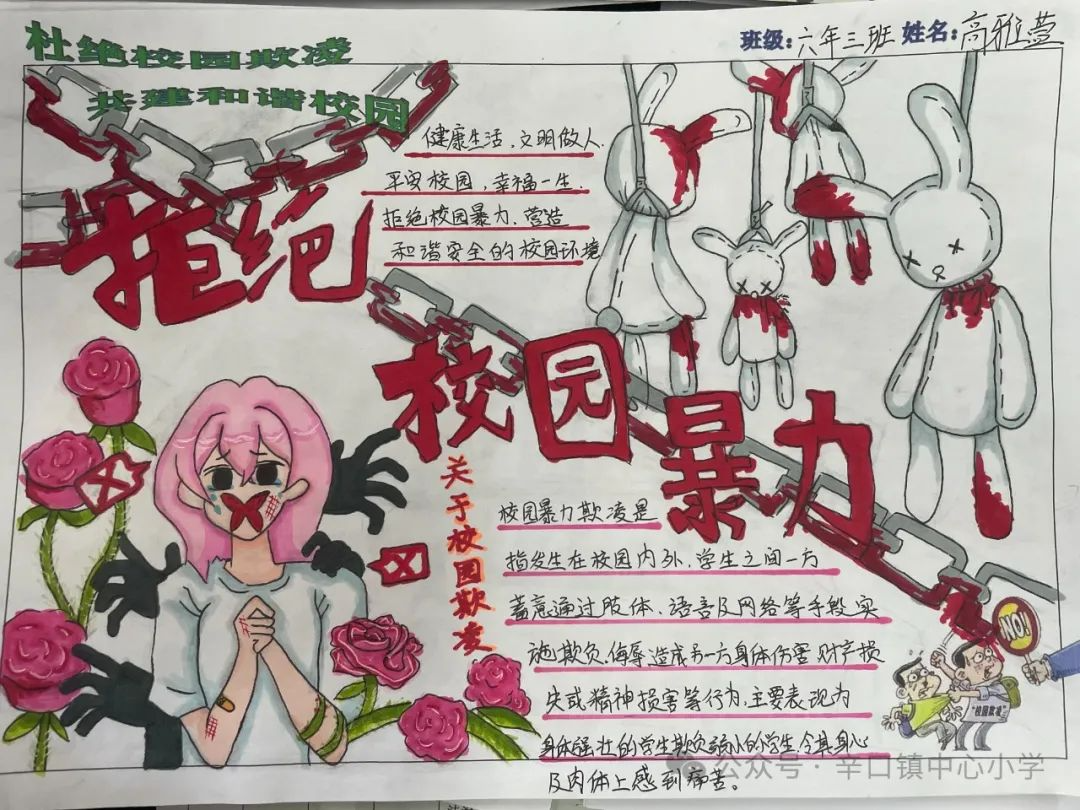 杜绝校园欺凌
共建和谐校园
班级:六年三班 姓名:高雅萱
健康生活,文明做人.
平安校园,幸福一生.
拒绝校园暴力、营造
和谐安全的校园环境
拒绝
校园
暴力
关于校园欺凌
校园暴力欺凌是
指发生在校园内外、学生之间一方
蓄意通过肢体、语言及网络等手段实
施欺负、侮辱造成另一方身体伤害财产损
失或精神损害等行为.主要表现为
身体强壮的学生欺负弱小的学生,令其身心
及肉体上感到痛苦。
NO!
"校园欺凌"
公众号·辛口镇中心小学